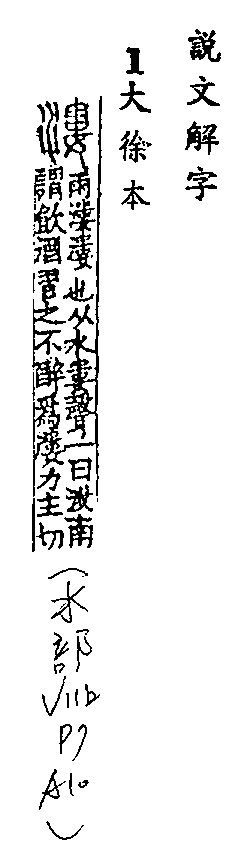 説文解字
1大徐本
雨漊漊也从水婁聲一曰汝南
謂飲酒習之不醉爲漊力主切
(水部
VIIb
P7
A10)